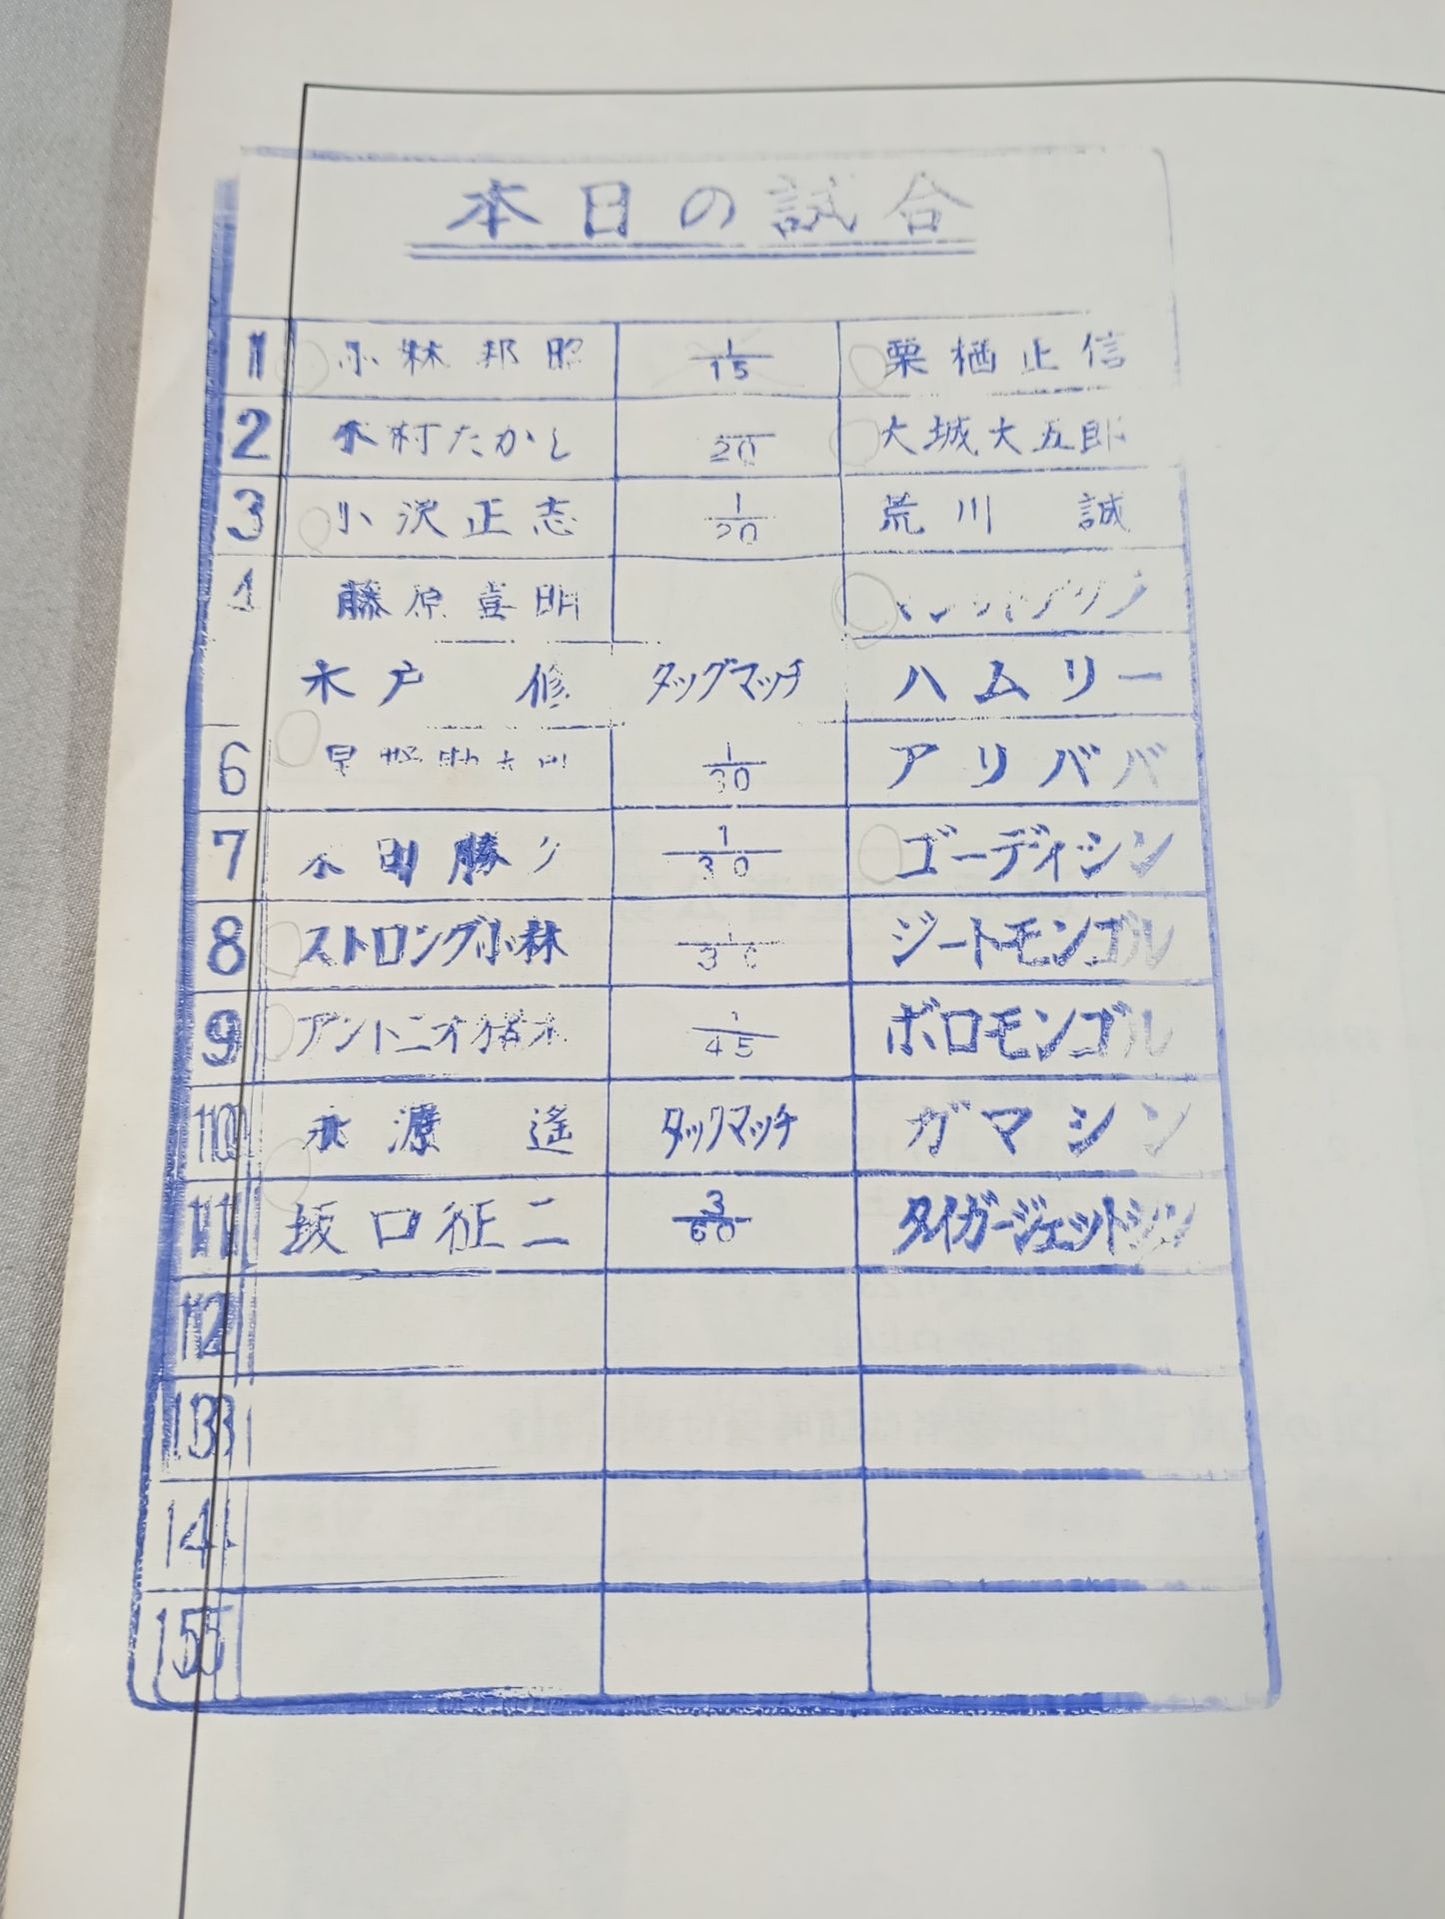 本日の試合
1 小林邦昭 1/15 栗栖正信
2 木村たかし /20 大城大五郎
3 小沢正志 1/20 荒川 誠
4 藤原喜明
木戸 修 タッグマッチ ハムリー
6 1/30 アリババ
7 木田勝 1/30 ゴーディシン
8 ストロング小林 1/30 ジートモンゴル
9 アントニオ猪木 1/45 ボロモンゴル
10 永源 遙 タックマッチ ガマシン
11 坂口征二 3/60 タイガージェットシン
12
13
14
15